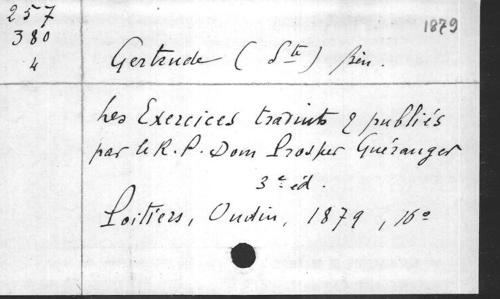 257
380
4
1879
Gertrude (Ste) bén.
Les Exercices traduits & publiés
par le R. P. Dom Prosper Guéranger
3e éd.
Poitiers, Oudin, 1879, 16o